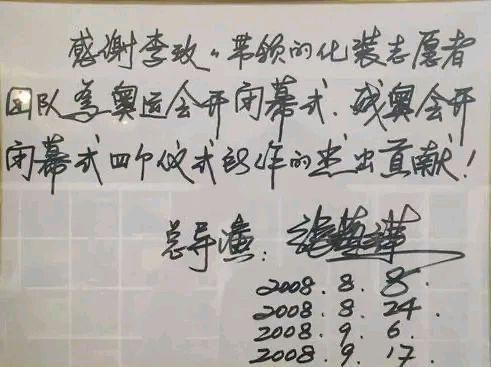 感谢李玫。带领的化装志愿者
团队为奥运会开闭幕式.残奥会开
闭幕式四个仪式所作的杰出贡献!
总导演:张艺谋
2008.8.8.
2008.8.24.
2008.9.6.
2008.9.17.